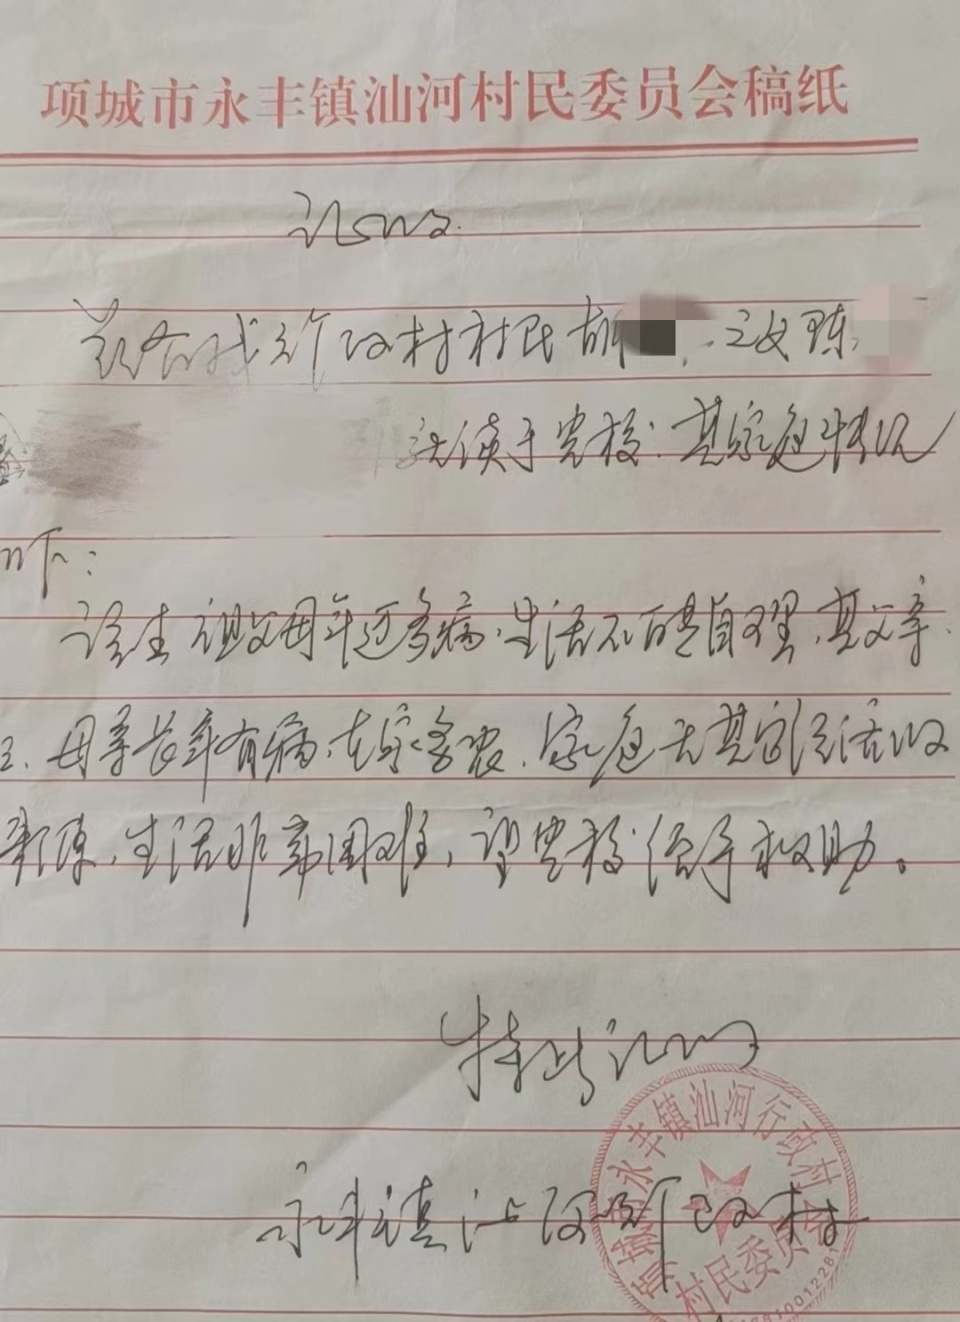 项城市永丰镇汕河村民委员会稿纸
证明
兹有我行政村村民胡 之女 陈
就读于贵校. 其家庭情况
如下:
该生祖父母年迈多病, 生活不能自理, 其父亲
母亲长年有病, 在家务农. 家庭无其它经济收
来源, 生活非常困难, 望贵校给予救助。
特此证明
永丰镇汕河行政村
永丰镇汕河行政村
村民委员会